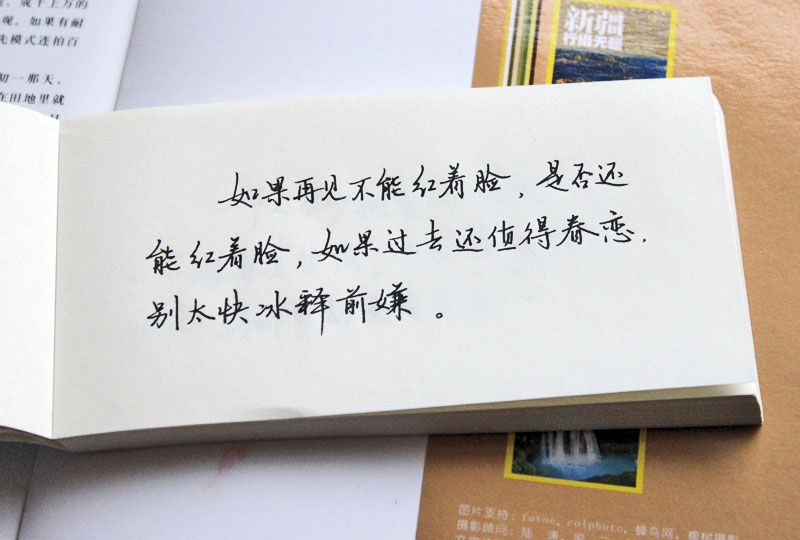 成千上万的
观。如果有耐
先模式连拍百
初一那天，
在田地里就
新疆
行摄无疆
如果再见不能红着脸，是否还
能红着脸，如果过去还值得眷恋.
别太快冰释前嫌。
图片支持：fotoe、colphoto、蜂鸟网、橡树摄影
摄影顾问：陆 涛